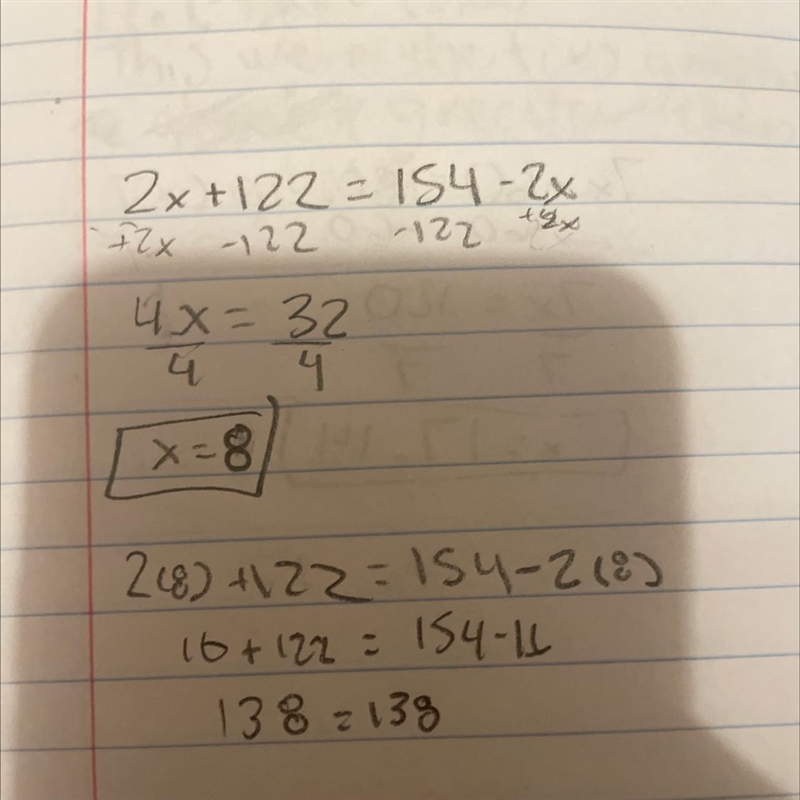 2x + 122 = 154 - 2x
+2x -122 -122 +2x
4x = 32
4 4
x = 8
2(8) + 122 = 154 - 2(8)
16 + 122 = 154 - 16
138 = 138